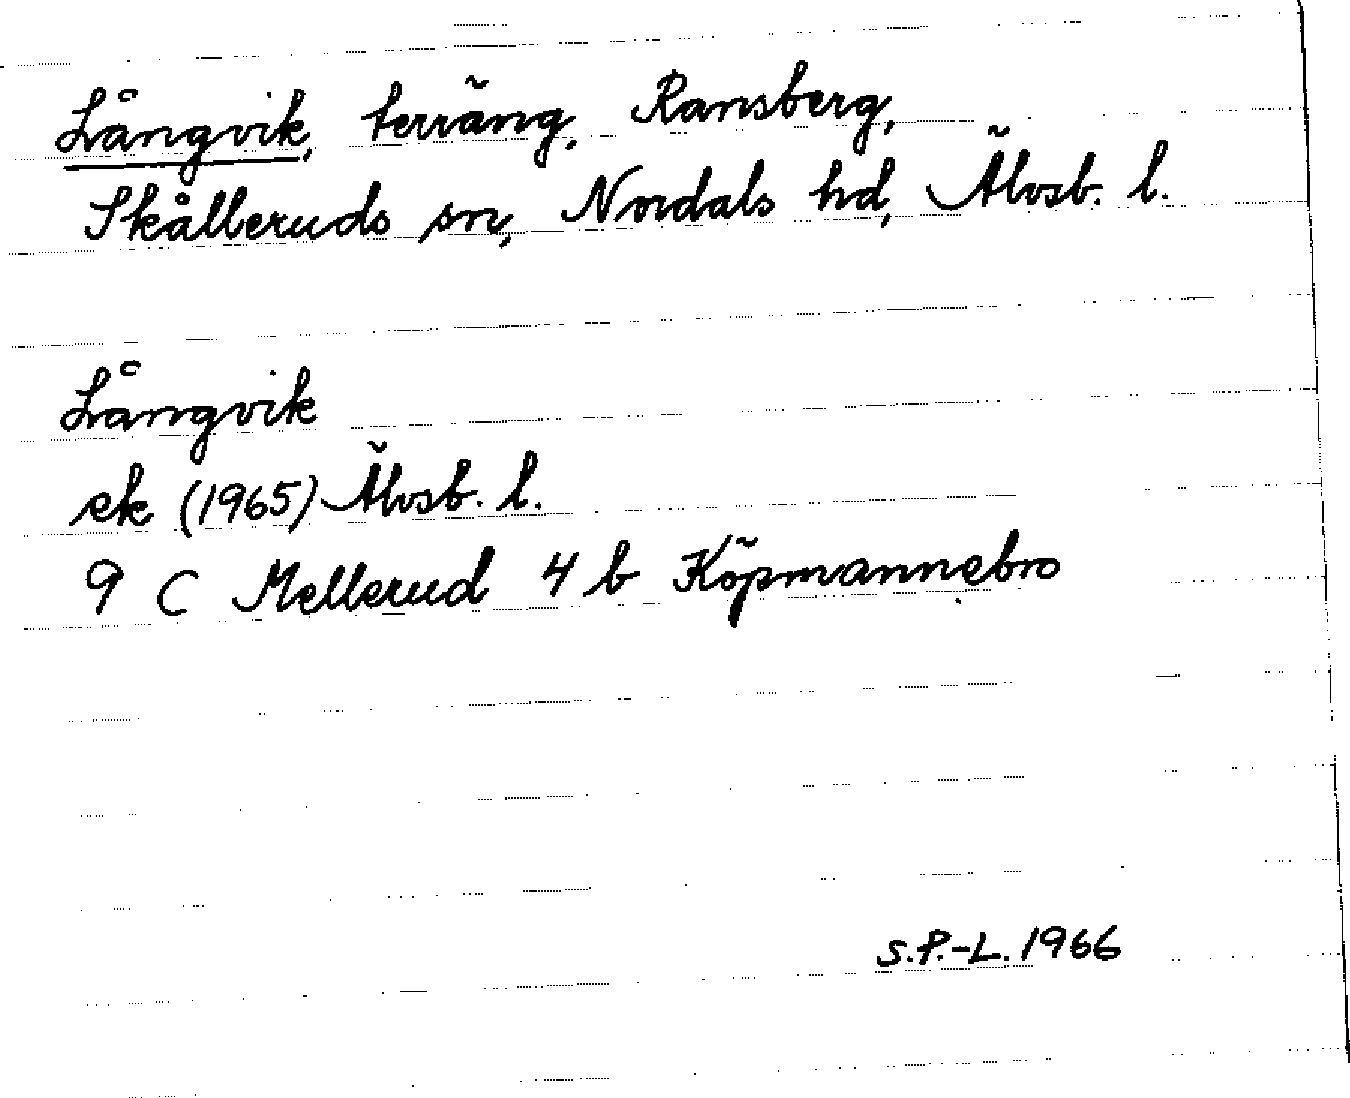 Långvik, terräng, Ransberg,
Skålleruds sn, Nordals hd, Älvsb. l.
Långvik
ek (1965) Älvsb. l.
9 C Mellerud 4 b Köpmannebro
S.P.-L. 1966